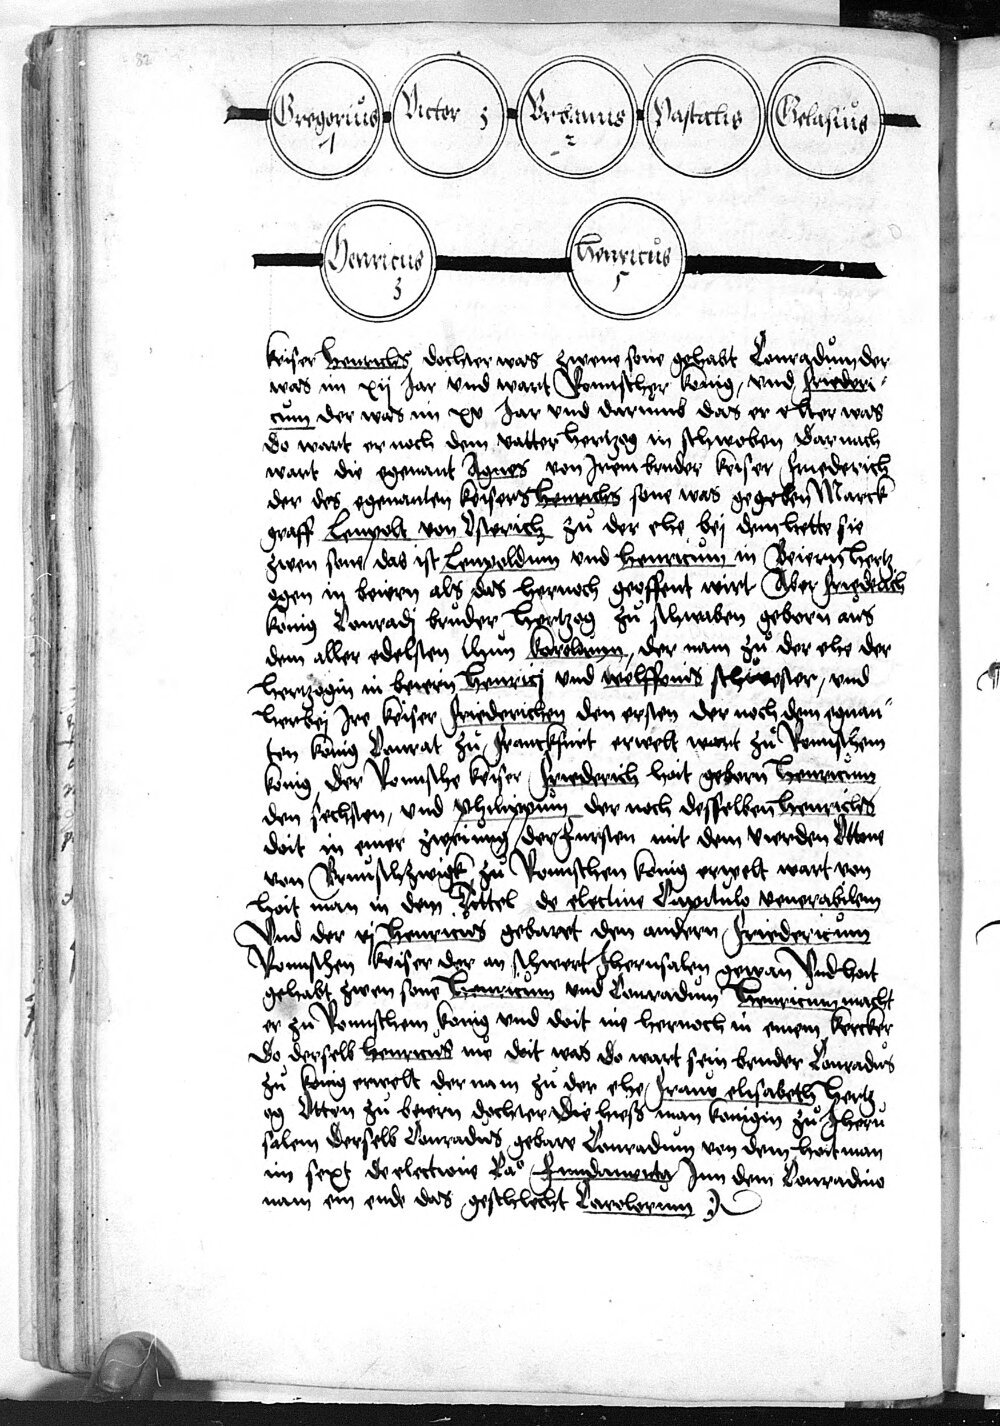 82
Gregorius Victor 3 Urbanus Pascalis Gelasius
7 2
Henricus Henricus
3 5
keiser Henrichs dochter was zwene sone gehabt Conradum der
was im xij Jar vnd wart Romscher konig, vnd Friederi-
cum der was im xv Jar vnd darumb das er elter was
do wart er noch dem vatter hertzog in schwoben Dar nach
wart die egenant Agnes von Irem bruder keiser Friederich
der des egenanten keisers Henrichs sone was gegeben Marck
graff Leupolt von Osterich zu der ehe bei dem hette sie
zwen sone das ist Leupoldum vnd Henricum in Beiern Hertz
ogen in beiern als das hernoch geoffent wirt Aber Friederich
konig Conradj bruder Hertzog zu schwaben geborn aus
dem aller edelsten Carolorum, der nam zu der ehe der
hertzogin in beiern Henricj vnd welffonis schwester, vnd
herbej Ire keiser Friederichen den ersten der noch dem egnan-
ten konig Conrat zu Franckfurt erwelt wart zu Romschem
konig, der Romsche keiser Friederich hait geborn Henricum
den sechsten, vnd Philippum der noch desselben Henrichs
doit in einer zweiung der Fursten mit dem vierden Ottone
von Brunschzwigk zu Romschen konig erwelt wart von
hoit man in dem Tittel de electine Capitulo venerabilem
Vnd der vj Henricus gebaret den andern Friedericum
Romschen keiser der an schwert Jherusalen gewan Vnd hait
gehabt zwen sone Henricum vnd Conradum Henricum macht
er zu Romschem konig vnd doit ine hernoch in einem kercker
Do derselb Henricus nue doit was do wart sein bruder Conradus
zu konig erwelt der nam zu der ehe Frauw elisabeth Hertz
og Otten zu beiern dochter die hieß man konigin zu Jheru
salem Derselb Conradus gebare Conradum von dem hoit man
im sext de electione Cao Fundamenta Inn dem Conradino
nam ein ende das geschlecht Carolorum